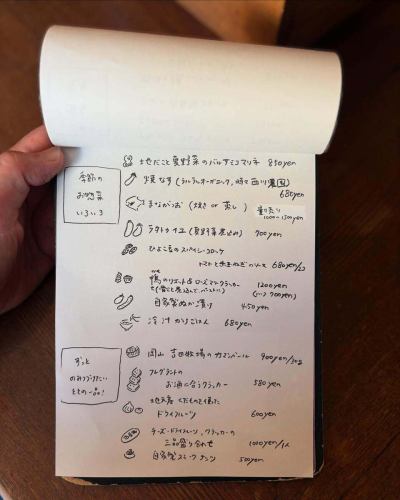 季節の
お惣菜
いろいろ
地だこと夏野菜のバルサミコマリネ 850yen
焼なす (ラルラルオーガニック, 時々西川農園)
680yen
まながつお (焼き or 蒸し) 量り売り
1000〜1500yen
ラタトゥイユ (夏野菜煮込み) 700yen
ひよこ豆のスパイシーコロッケ
トマトと玉ねぎのソース 680yen/2コ
鴨のリエット&ローズマリークラッカー
1200yen
(ハーフ 700yen)
自家製ぬか漬け 450yen
冷汁かけごはん 680yen
ずっと
のみつづけたい
ときの一品!
岡山 吉田牧場のカマンベール 900yen/30g
フレグラントの
お酒に合うクラッカー 580yen
地元産くだものを使った
ドライフルーツ 600yen
チーズ・ドライフルーツ, クラッカーの
三品盛り合わせ 1000yen/1人
自家製スモークナッツ 500yen